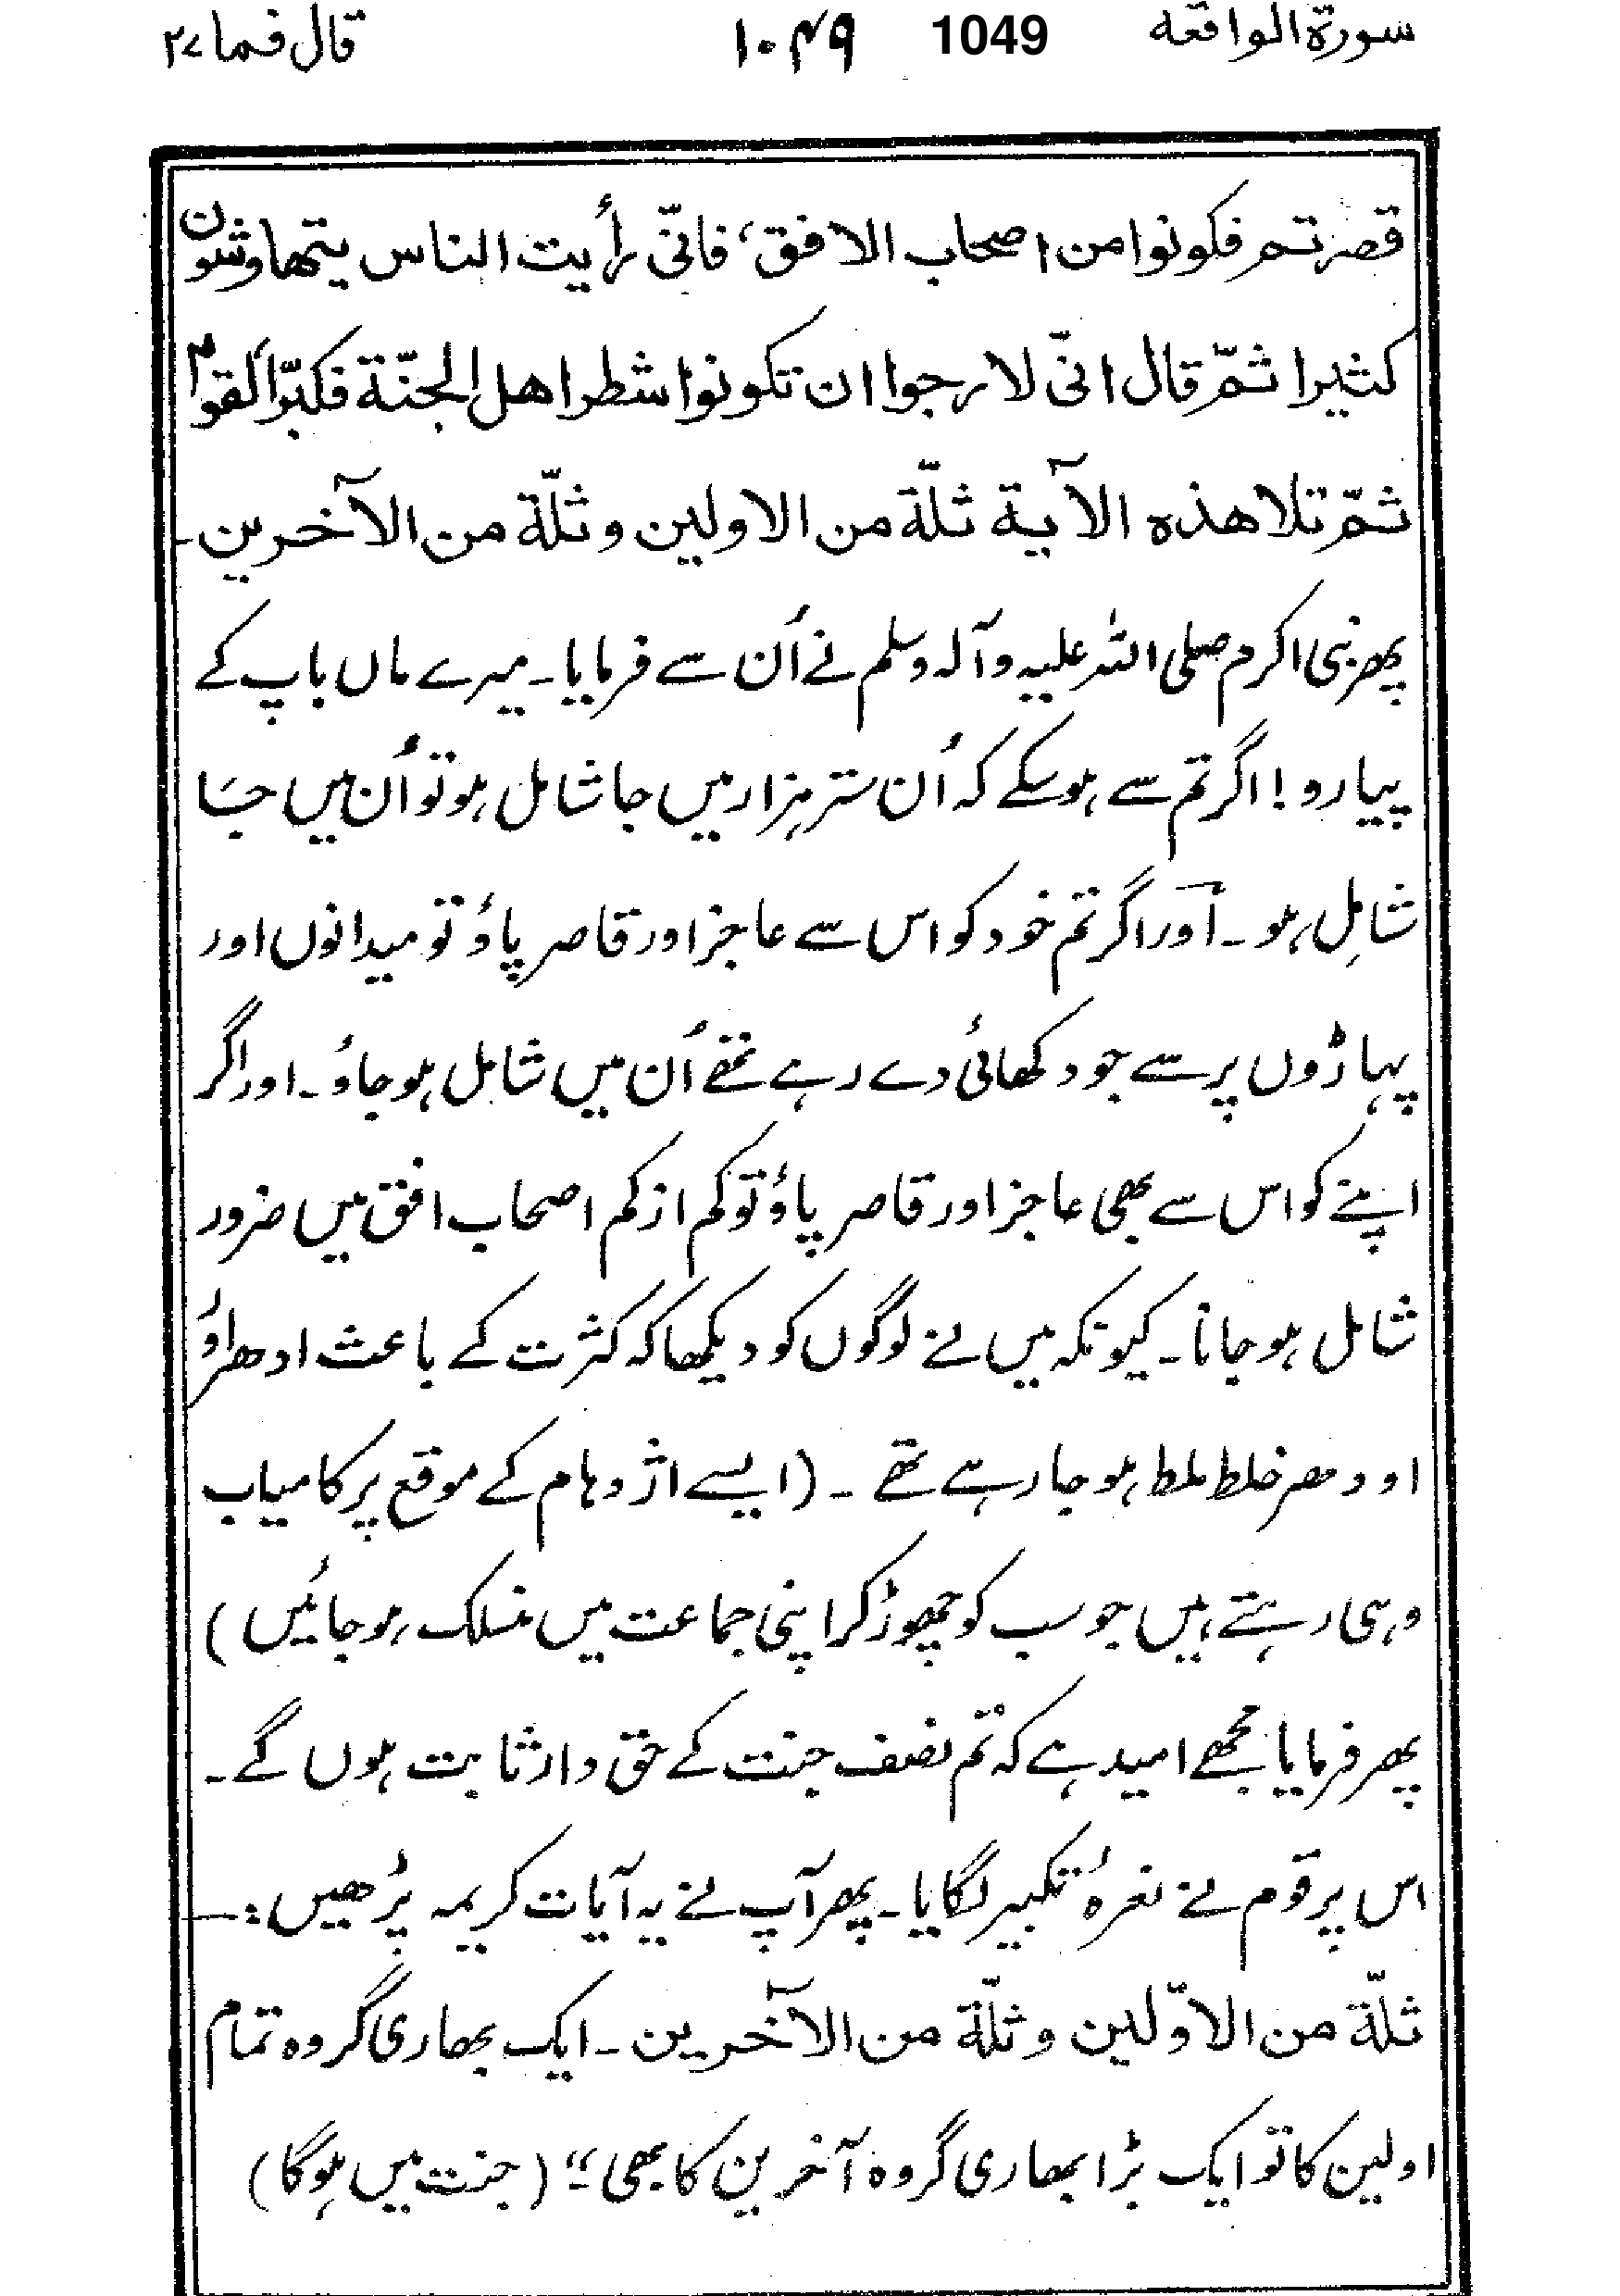 سورة الواقعه 1049 ۱۰۴۹ قال فما ۲۷
قصرتم فكونوا من اصحاب الافق، فانّی رأیت الناس یتهاوشون
كثیرا ثمّ قال انّی لارجوا ان تكونوا شطر اهل الجنّة فكبّر القوم
ثمّ تلا هذه الآیة ثلّة من الاولین و ثلّة من الآخرین۔
پھر نبی اکرم صلی اللہ علیہ وآلہ وسلم نے اُن سے فرمایا۔ میرے ماں باپ کے
پیارو! اگر تم سے ہو سکے کہ اُن ستر ہزار میں جا شامل ہو تو اُن میں جا
شامِل ہو۔ اَور اگر تم خود کو اس سے عاجز اور قاصر پاؤ تو میدانوں اور
پہاڑوں پر سے جو دکھائی دے رہے تھے اُن میں شامل ہو جاؤ۔ اور اگر
اپنے کو اس سے بھی عاجز اور قاصر پاؤ تو کم از کم اصحاب افق میں ضرور
شامل ہو جانا۔ کیونکہ میں نے لوگوں کو دیکھا کہ کثرت کے باعث ادھر اوُر
اودھر خلط ملط ہو جا رہے تھے ۔ (ایسے اژدہام کے موقع پر کامیاب
وہی رہتے ہیں جو سب کو چھوڑ کر اپنی جماعت میں منسلک ہو جائیں)
پھر فرمایا مجھے امید ہے کہ تم نصف جنت کے حق دار ثابت ہوں گے۔
اس پر قوم نے نعرہُ تکبیر لگایا۔ پھر آپ نے یہ آیات کریمہ پڑھیں:۔
ثلّة من الاوّلین و ثلّة من الآخرین۔ ایک بھاری گروہ تمام
اولین کا تو ایک بڑا بھاری گروہ آخرین کا بھی ؛“ (جنت میں ہوگا)